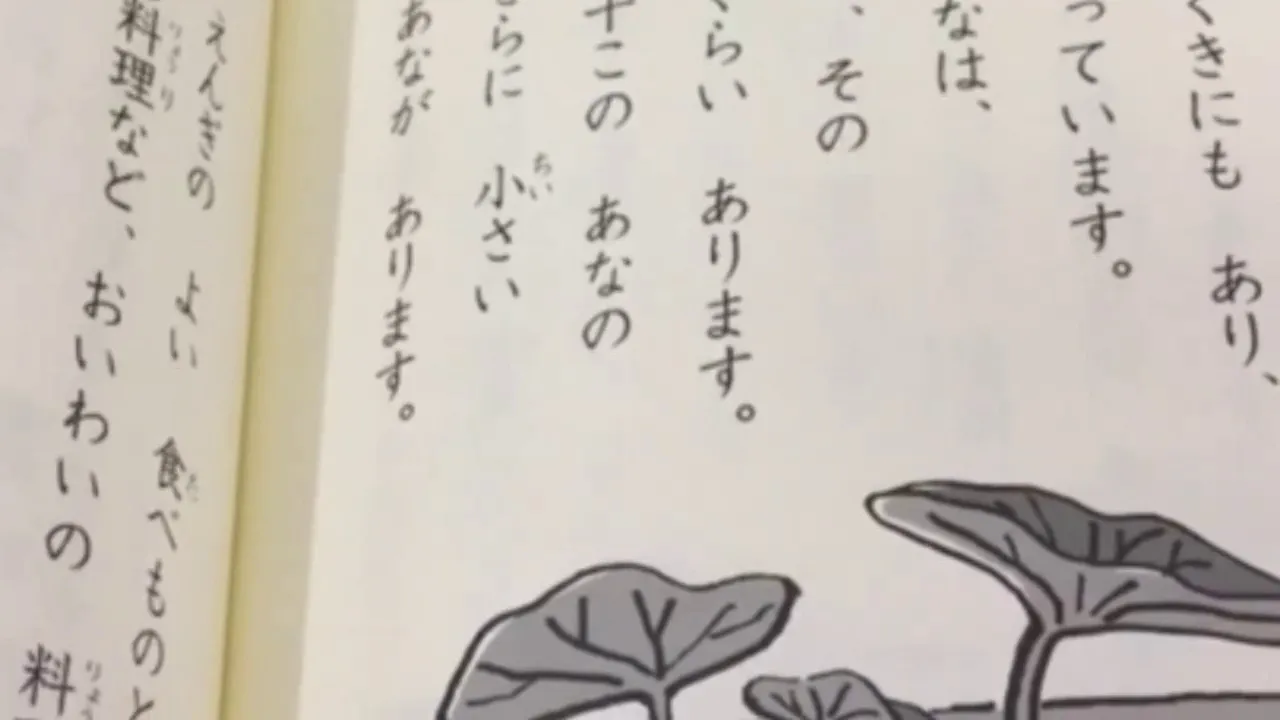 くきにも あり、
っています。
なは、
、その
くらい あります。
十この あなの
らに 小さい
あなが あります。
えんぎの よい 食べものと
料理など、おいわいの 料